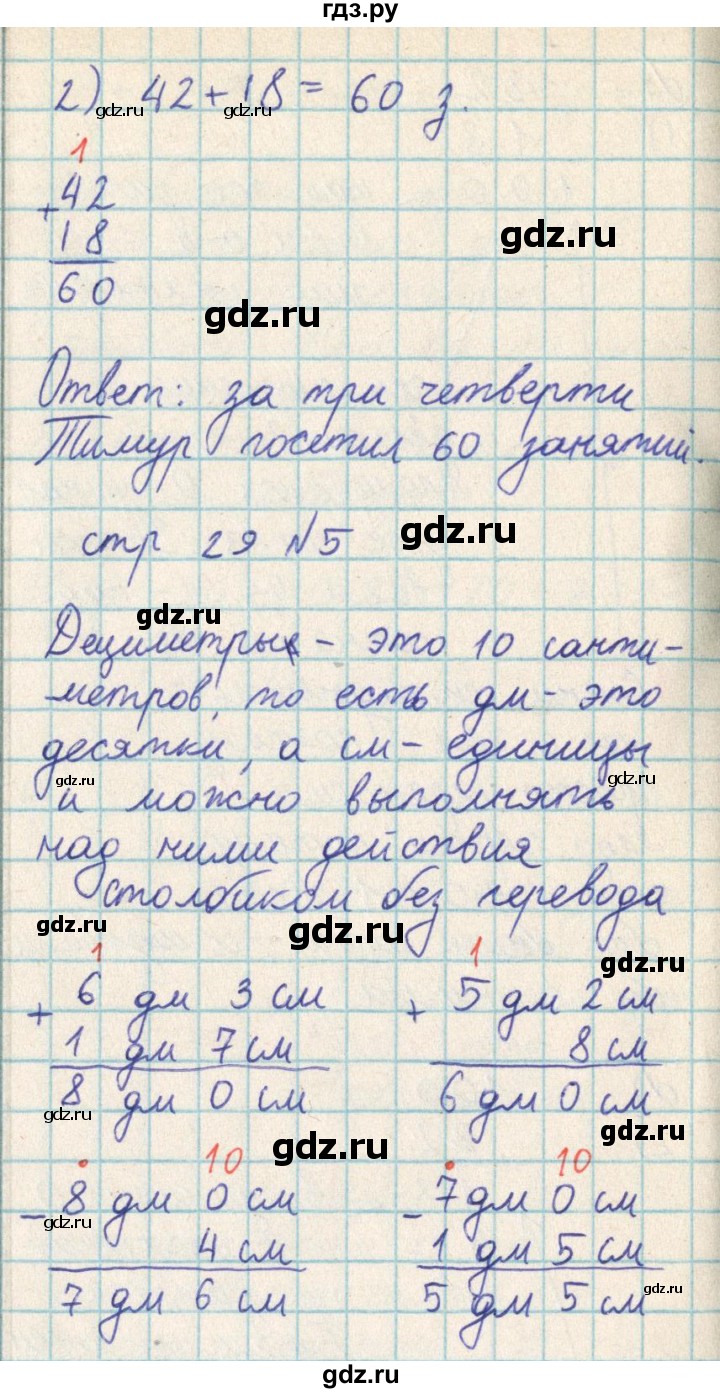 гдз.ру
2) 42+18= 60 з.
gdz.ru gdz.ru
1
+42
18
60
gdz.ru
gdz.ru
Ответ: за три четверти
Тимур посетил 60 занятий.
стр 29 №5
gdz.ru
gdz.ru
Дециметры - это 10 санти-
метров, то есть дм - это
десятки, а см - единицы
gdz.ru gdz.ru
и можно выполнять
над ними действия
столбиком без перевода
gdz.ru gdz.ru
1 1
gdz.ru
+ 6 дм 3 см + 5 дм 2 см
1 дм 7 см 8 см
8 дм 0 см 6 дм 0 см
gdz.ru gdz.ru
gdz.ru
. 10 . 10
- 8 дм 0 см - 7 дм 0 см
gdz.ru
4 см 1 дм 5 см
7 дм 6 см 5 дм 5 см
gdz.ru
gdz.ru